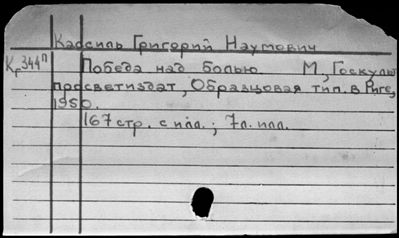 Кассиль Григорий Наумович
Кг344п Победа над болью. М., Госкульт
просветиздат, Образцовая тип. в Риге,
1950.
167 стр. с илл.; 7 л. илл.